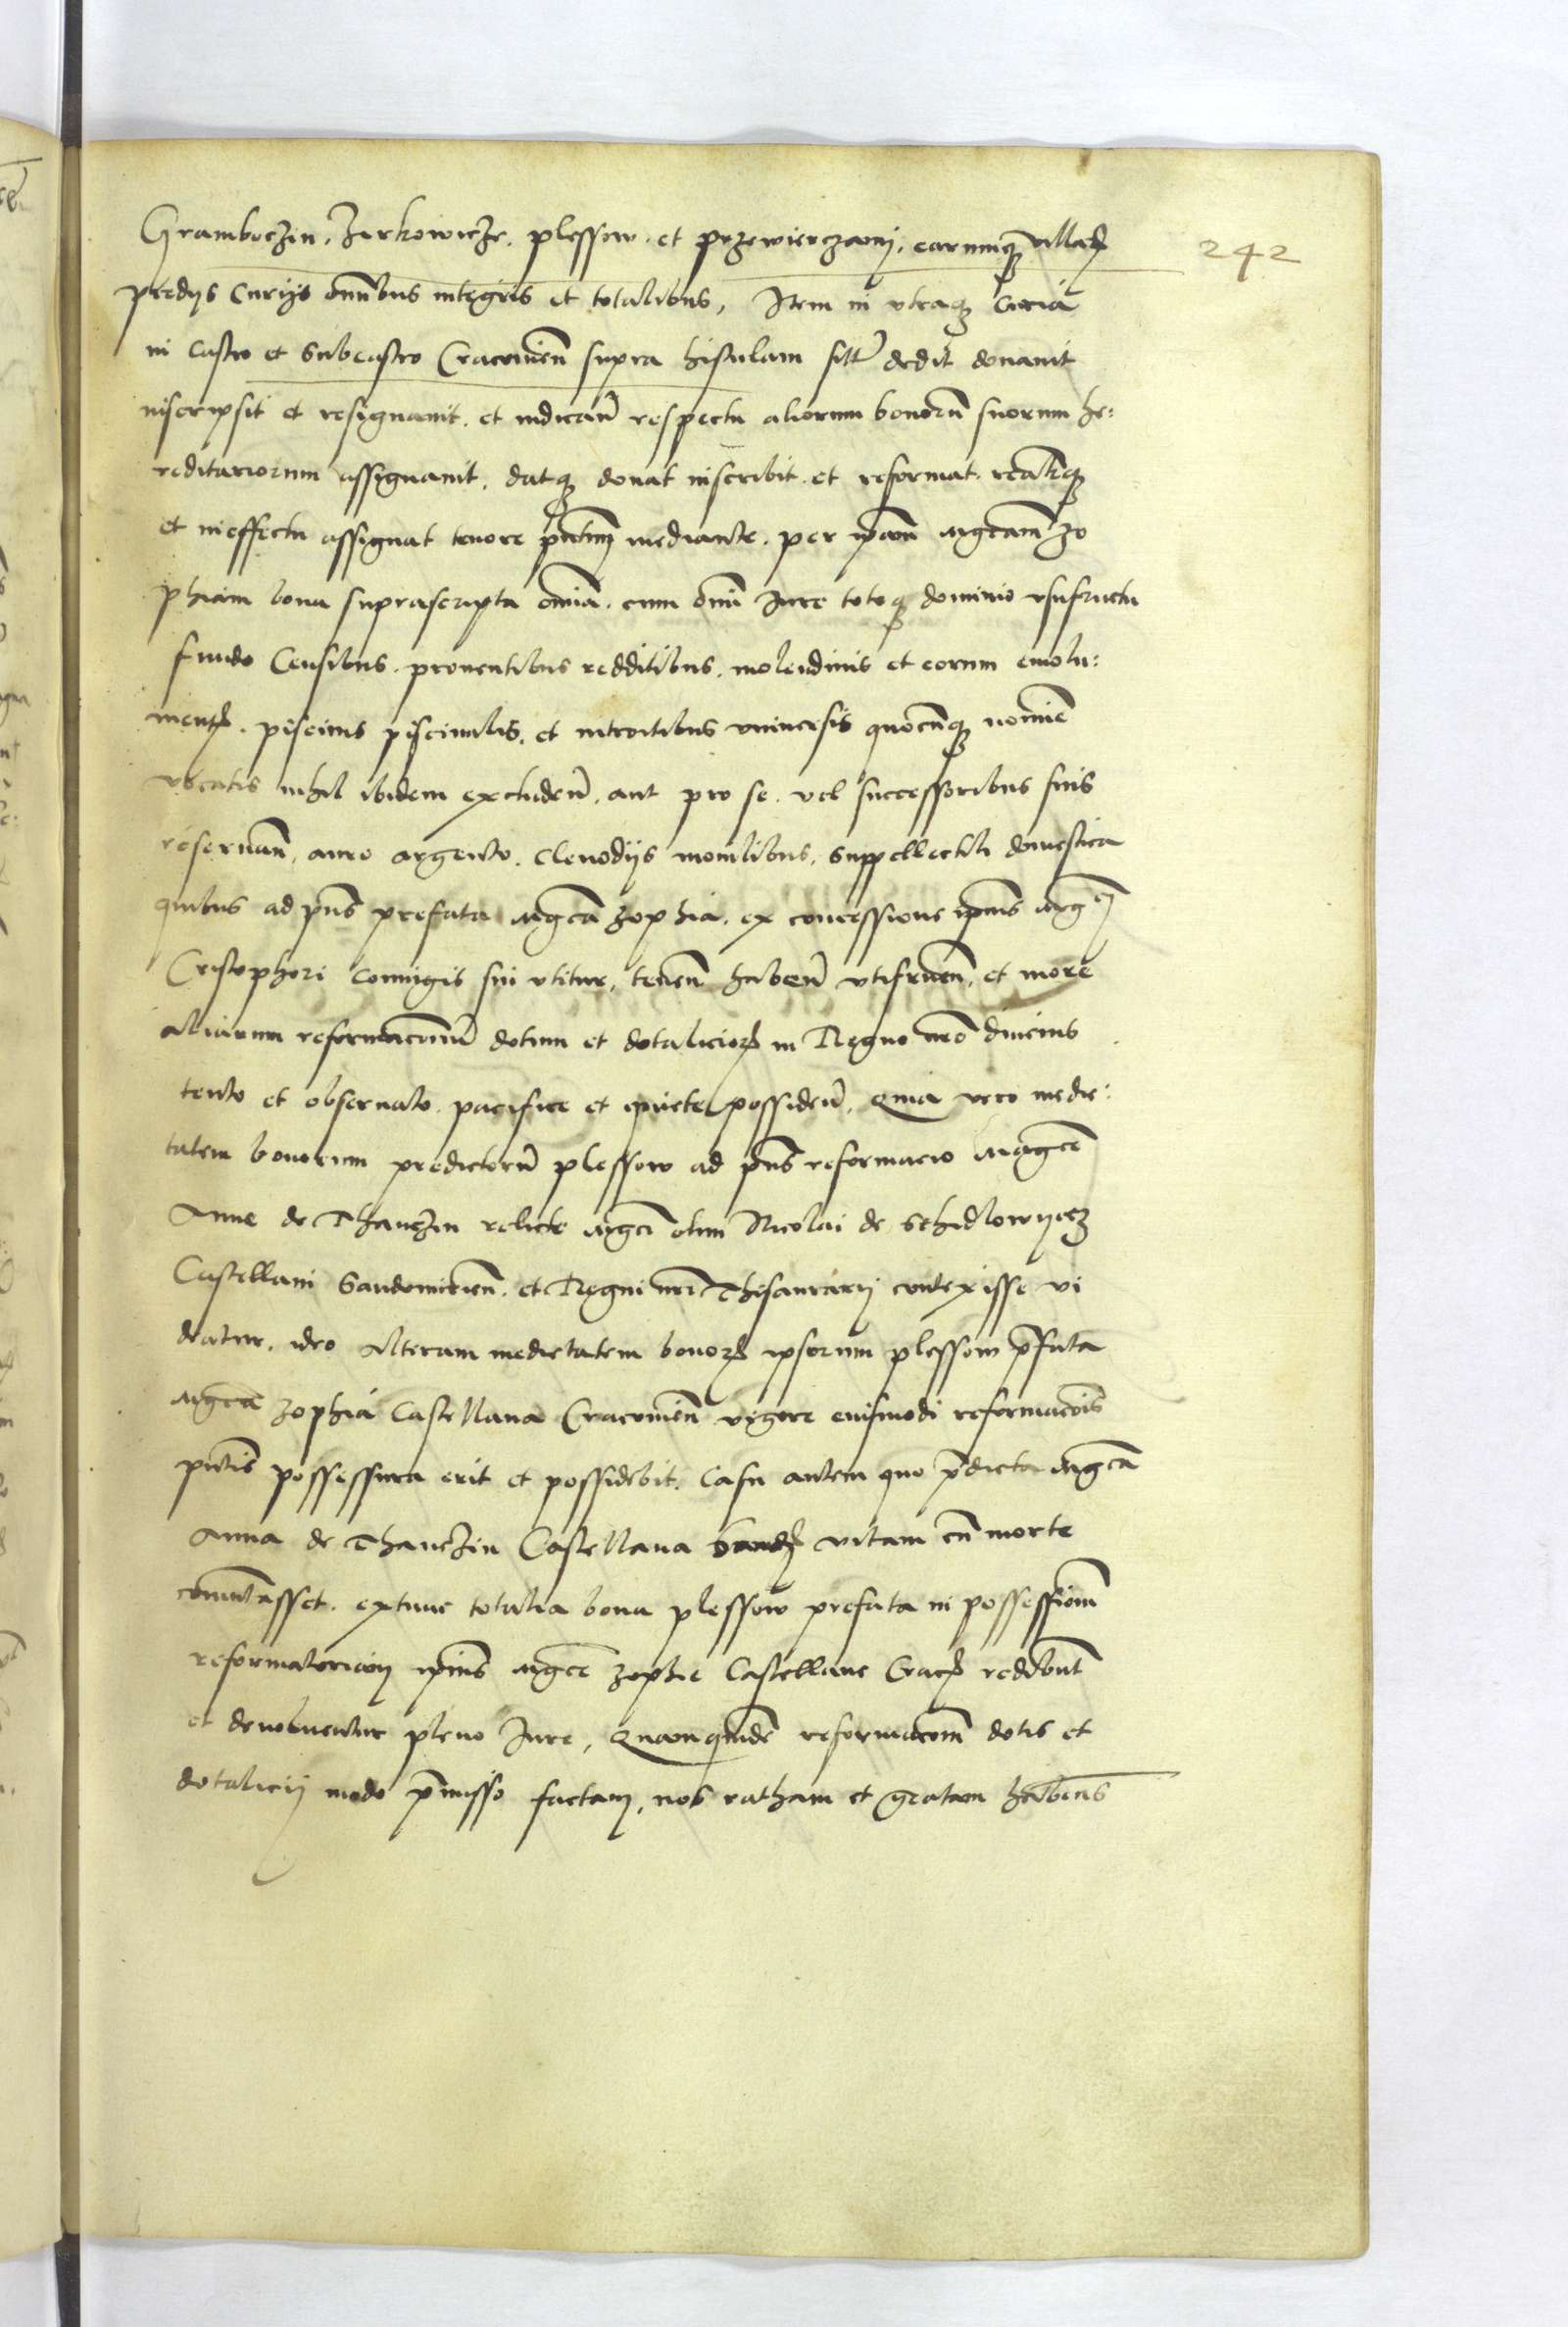 Gramboczin, Zyrkowicze, plessow, et przewierczanij, earumq3 villaꝝ
predijs Curijs oṁibus integris et totalibus, Item in vtraq3 Curia
in Castro et Subcastro Cracouień supra hisulam sitt dedit donauit
inscripsit et resignauit, et indicań respectu aliorum bonoru͂ suorum he:
reditariorum assignauit, datq3 donat inscribit et reformat, realiq3
et in effectu assignat tenore pn̄tium mediante, per ip̄am Mgcam̄ Zo
phiam bona suprascripta omīa, cum omī Iure totoq3 dominio vsufructu
fundo Censibus, prouentibus redditibus, molendinis et eorum emolu:
mentꝭ, piscinis pisciculis, et introitibus vniuersis quocūq3 nomine
vocatis nihil ibidem excludeń, aut pro se vel successoribus suis
reseruań, auro argento, Clenodijs monilibus, suppellectili domestica
quibus ad p̄ns prefata Mgca Zophia, ex concessione ip̄ius Mgci
Cristophori Coniugis sui vtitur, tenen̄ haben̄ vtifruen̄, et more
aliarum reformacionū dotium et dotalicioꝝ in Regno nr̄o diucius
tento et obseruato, pacifice et quiete possideń, Quia vero medie:
tatem bonorum predictorū plessow ad p̄ns reformacio Mgce
Anne de Thanczin relicte Mgci olim Nicolai de Schidlowyecz
Castellani Sandomirień, et Regni nr̄i Thesaurarij contexisse vi
deatur, ideo alteram medietatem bonoꝝ ipsorum plessow p̄fata
Mgca Zophia Castellana Cracouień vigore eiusmodi reformacōis
pn̄tis possessura erit et possidebit, Casu autem quo p̄dicta Mgca
Anna de Thanczin Castellana Sandꝭ vitam cū morte
com̄utasset, extunc totalia bona plessow prefata in possessionē
reformatoriam ip̄ius Mgce Zophie Castellane Cracꝭ reddibunt
et deuoluentur pleno Iure, Quamquidē reformacōem dotis et
dotalicij modo p̄misso factam, nos ratham et gratam habentes
242